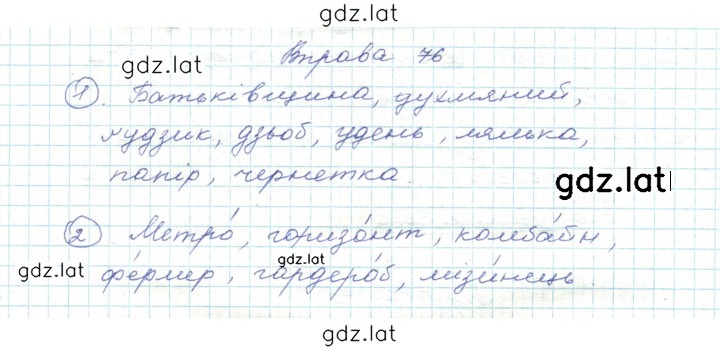 gdz.lat
Вправа 76
gdz.lat
1. Батьківщина, духмяний,
ґудзик, дзьоб, удень, лялька,
папір, чернетка.
gdz.lat
2 Метро́, горизо́нт, комба́йн,
gdz.lat
фе́рмер, гардеро́б, мізи́нець.
gdz.lat
gdz.lat